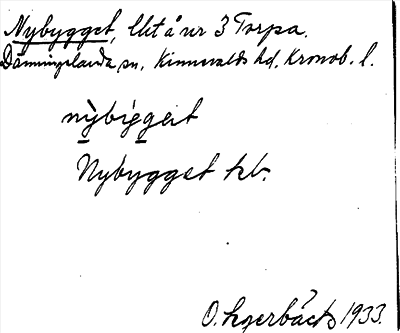 Nybygget, lht å nr 3 Torpa.
Dänningelanda sn, Kinnevalds hd, Kronob. l.
nỳbýggeit
Nybygget kb.
O. Lgerbäck 1933.